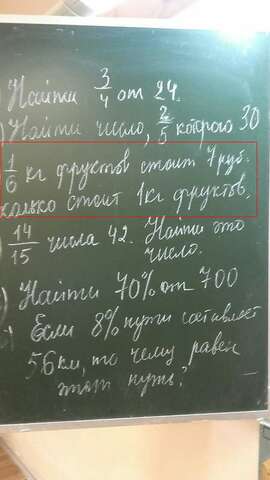 Найти 3/4 от 24.
) Найти число, 2/5 которого 30
1/6 кг фруктов стоит 7 руб.
колько стоит 1 кг фруктов.
14/15 числа 42. Найти это
число.
) Найти 70% от 700
Если 8% пути составляет
56 км, то чему равен
этот путь?